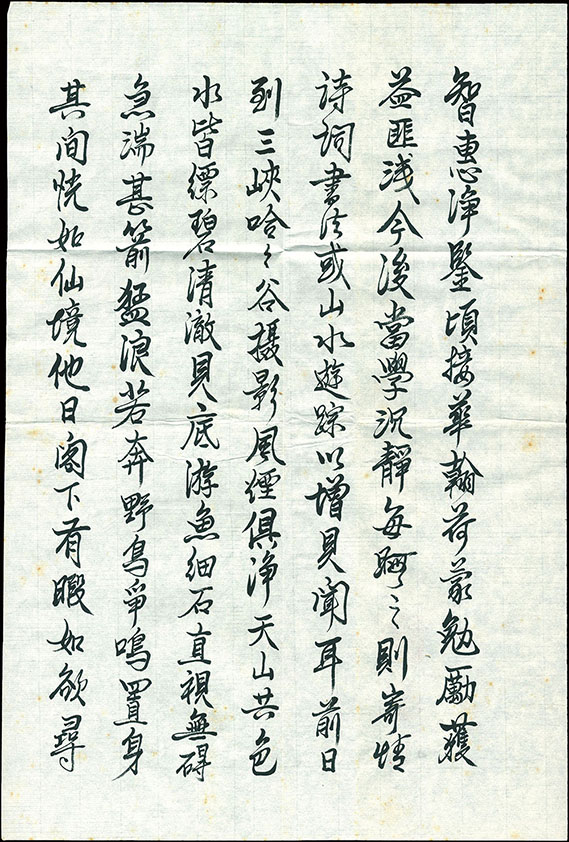 智惠淨鑒頃接華翰荷蒙勉勵獲
益匪淺今後當學沉靜每暇之則寄情
詩詞書法或山水遊踪以增見聞耳前日
到三峽哈々谷摄影風煙俱淨天山共色
水皆縹碧清澈見底游魚細石直視無碍
急湍甚箭猛浪若奔野鳥爭鳴置身
其间恍如仙境他日阁下有暇如欲尋